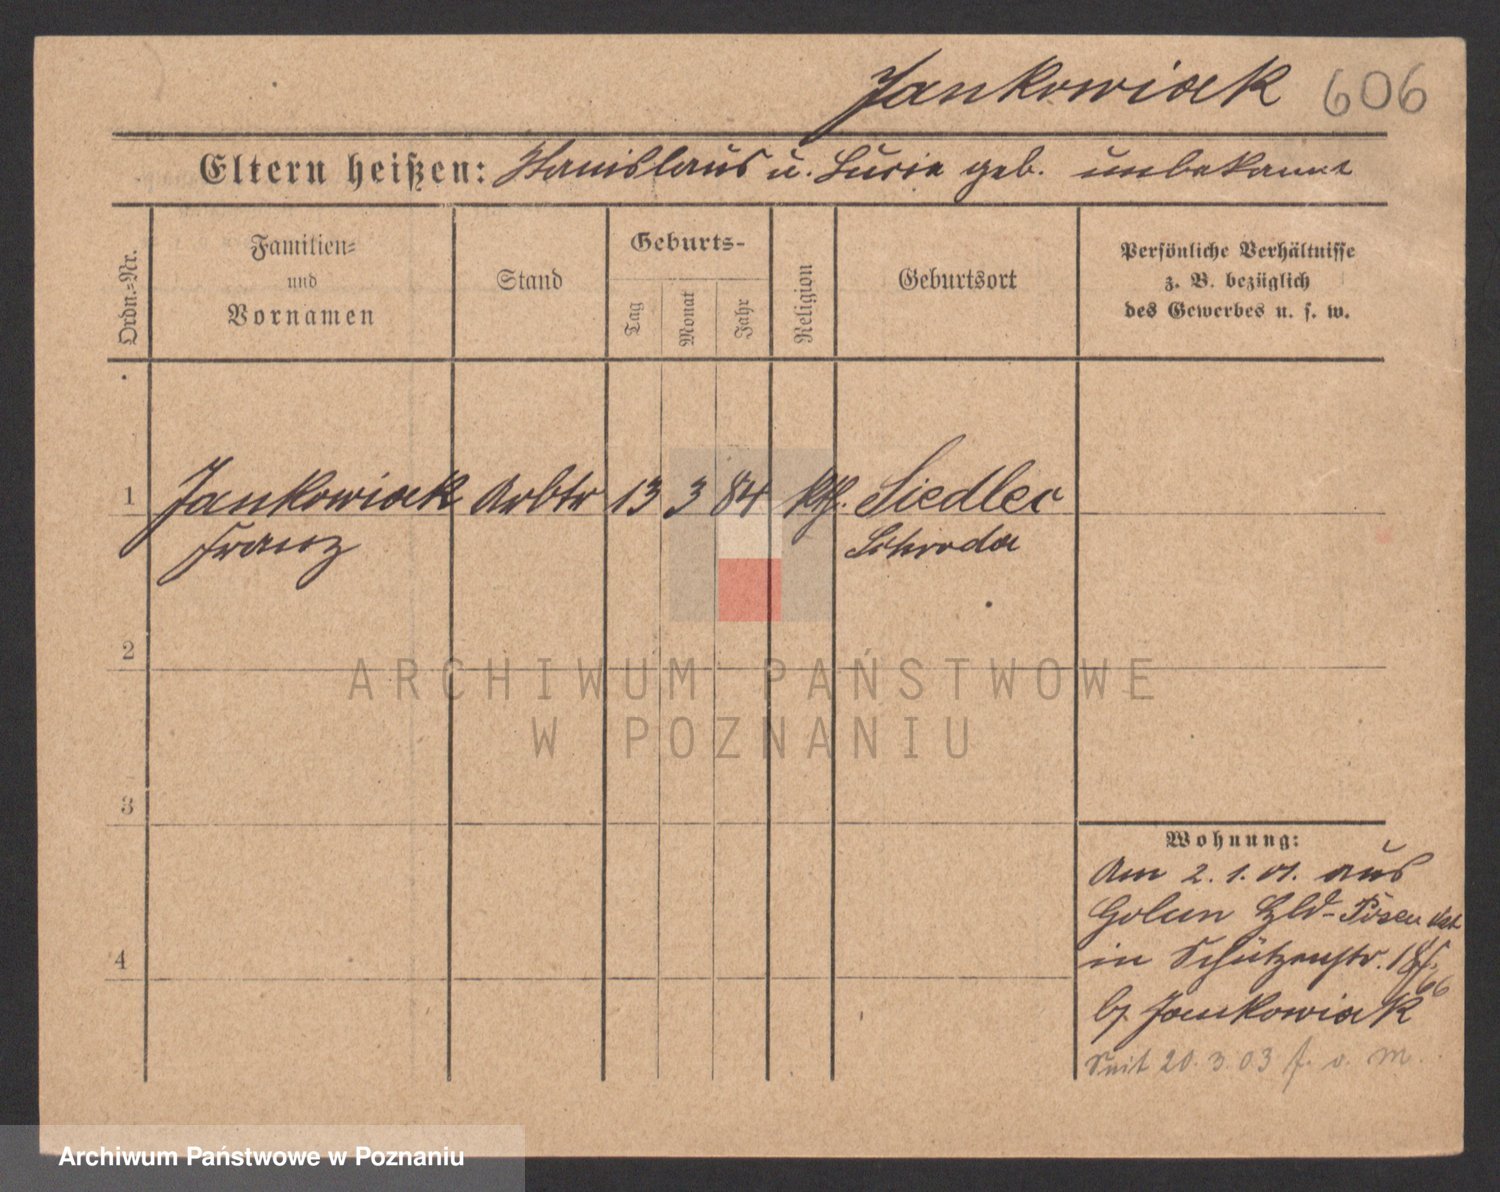 Jankowiak 606
Eltern heißen: Stanislaus u. Lucie geb. unbekannt
Ordn.-Nr.
Familien-
und
Vornamen
Stand
Geburts-
Tag
Monat
Jahr
Religion
Geburtsort
Persönliche Verhältnisse
z. B. bezüglich
des Gewerbes u. s. w.
1 Jankowiak Arbtr 13 3 84 kth. Siedlec
Franz Schroda
2
3
4
Wohnung:
Am 2. 1. 01. aus
Golun Posen
in Schützenstr.
66
b/ Jankowiak
Seit 20. 3. 03 f. v. M.
ARCHIWUM PAŃSTWOWE
W POZNANIU
Archiwum Państwowe w Poznaniu